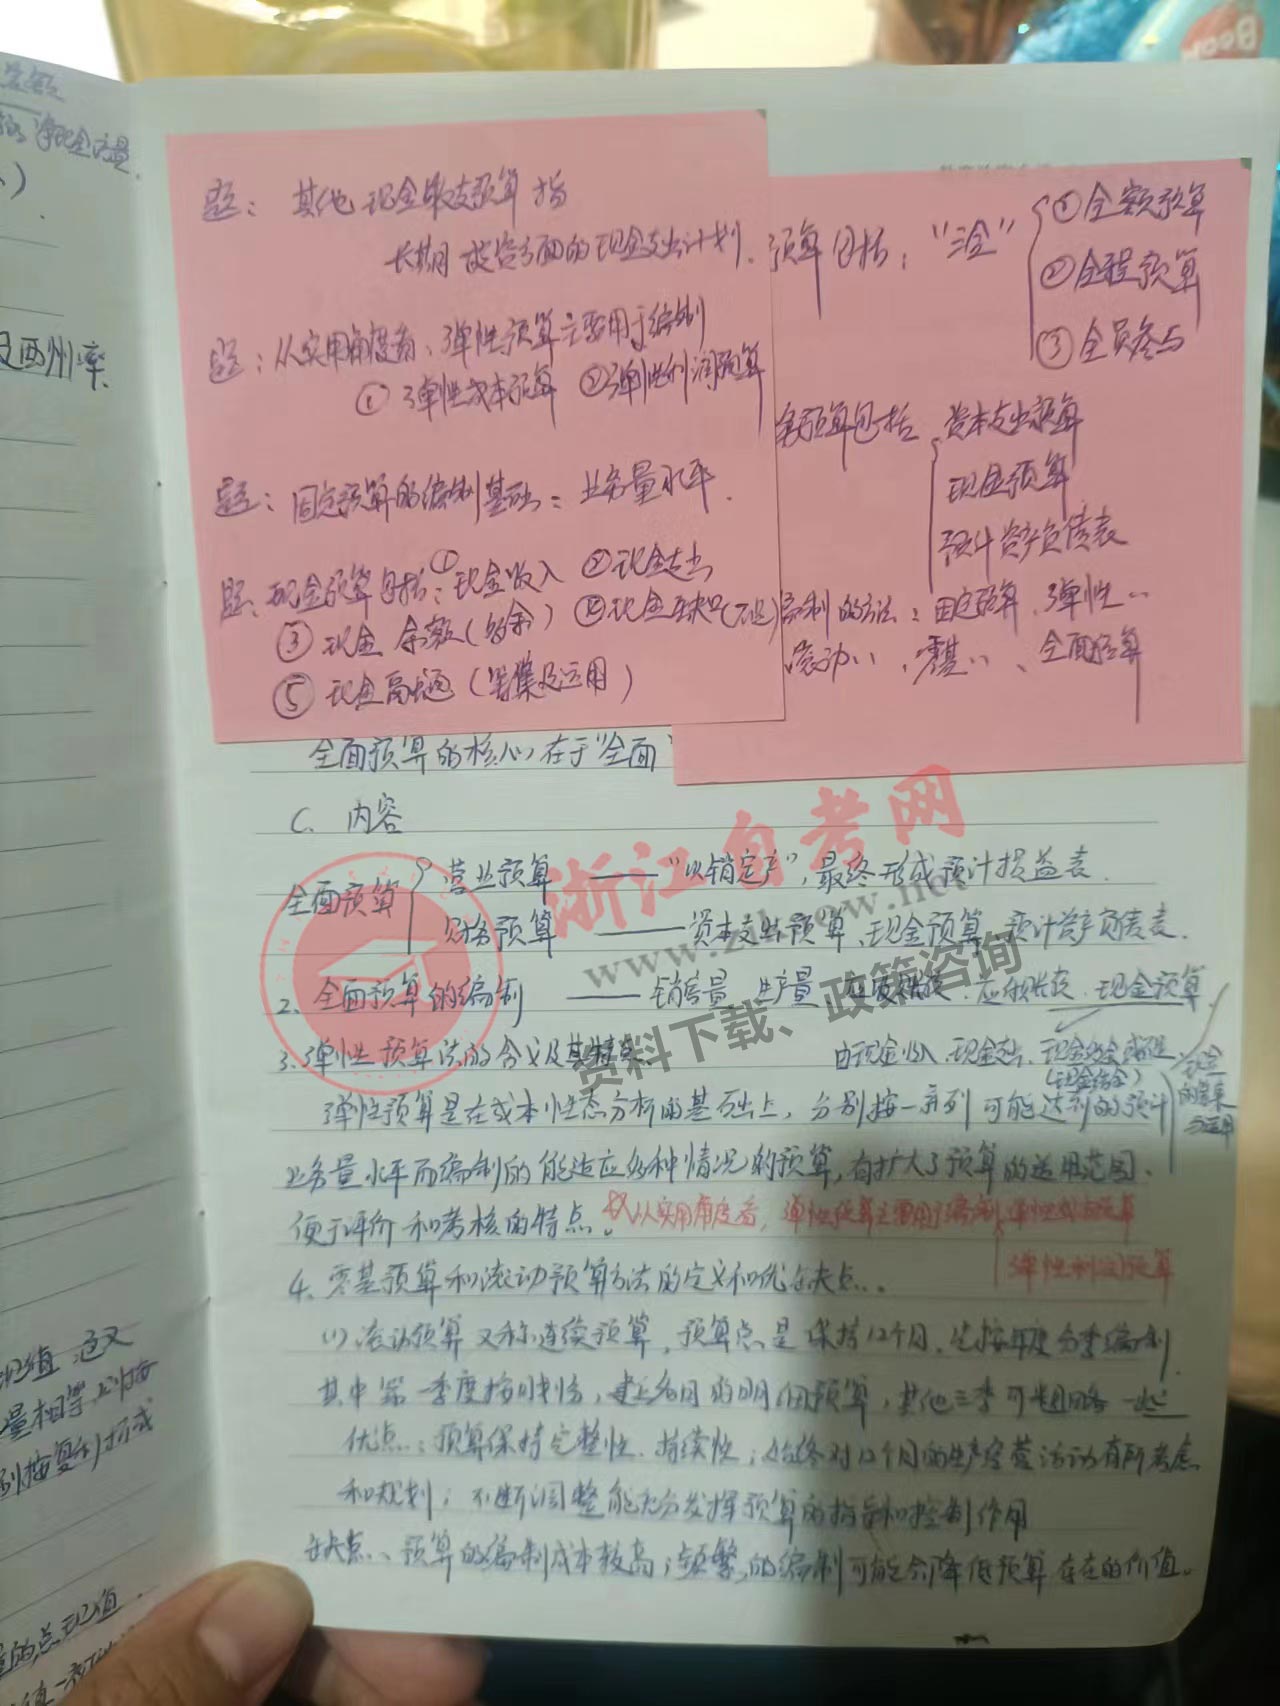 净现金流量
及西州率
题：其他现金收支预算指
长期投资方面的现金支出计划.
题：从实用角度看，弹性预算主要用于编制
①弹性成本预算 ②弹性利润预算
题：固定预算的编制基础：业务量水平.
题：现金预算包括：①现金收入 ②现金支出
③现金余额(多余) ④现金缺口(不足)
⑤现金融通(筹集及运用)
预算包括：“三全”
①全额预算
②全程预算
③全员参与
务预算包括
资本支出预算
现金预算
预计资产负债表
编制的方法：固定预算、弹性〃
滚动〃、零基〃、全面预算
全面预算的核心在于“全面
C、内容
全面预算
营业预算 —— “以销定产”，最终形成预计损益表.
财务预算 —— 资本支出预算、现金预算、预计资产负债表.
2、全面预算的编制 —— 销售量、生产量、应收账款、应付账款、现金预算.
3、弹性预算法的含义及其特点
由现金收入、现金支出、现金多余或不足
(现金结余)
现金
的筹集
与运用
弹性预算是在成本性态分析的基础上，分别按一系列可能达到的预计
业务量水平而编制的能适应多种情况的预算，有扩大了预算的适用范围、
便于评价和考核的特点。
从实用角度看，弹性预算主要用于编制
弹性成本预算
弹性利润预算
4、零基预算和滚动预算方法的定义和优、缺点.
(1) 滚动预算又称连续预算，预算点是保持12个月，先按年度分季编制
其中第一季度按月划分，建立各月的明细预算，其他三季可粗略一些
优点：预算保持完整性、持续性；始终对12个月的生产经营活动有所考虑
和规划；不断调整能充分发挥预算的指导和控制作用
缺点：预算的编制成本较高；频繁的编制可能会降低预算存在的价值。
浙江自考网
www.zjzkw.net
资料下载、政策咨询
量相等
的点现值